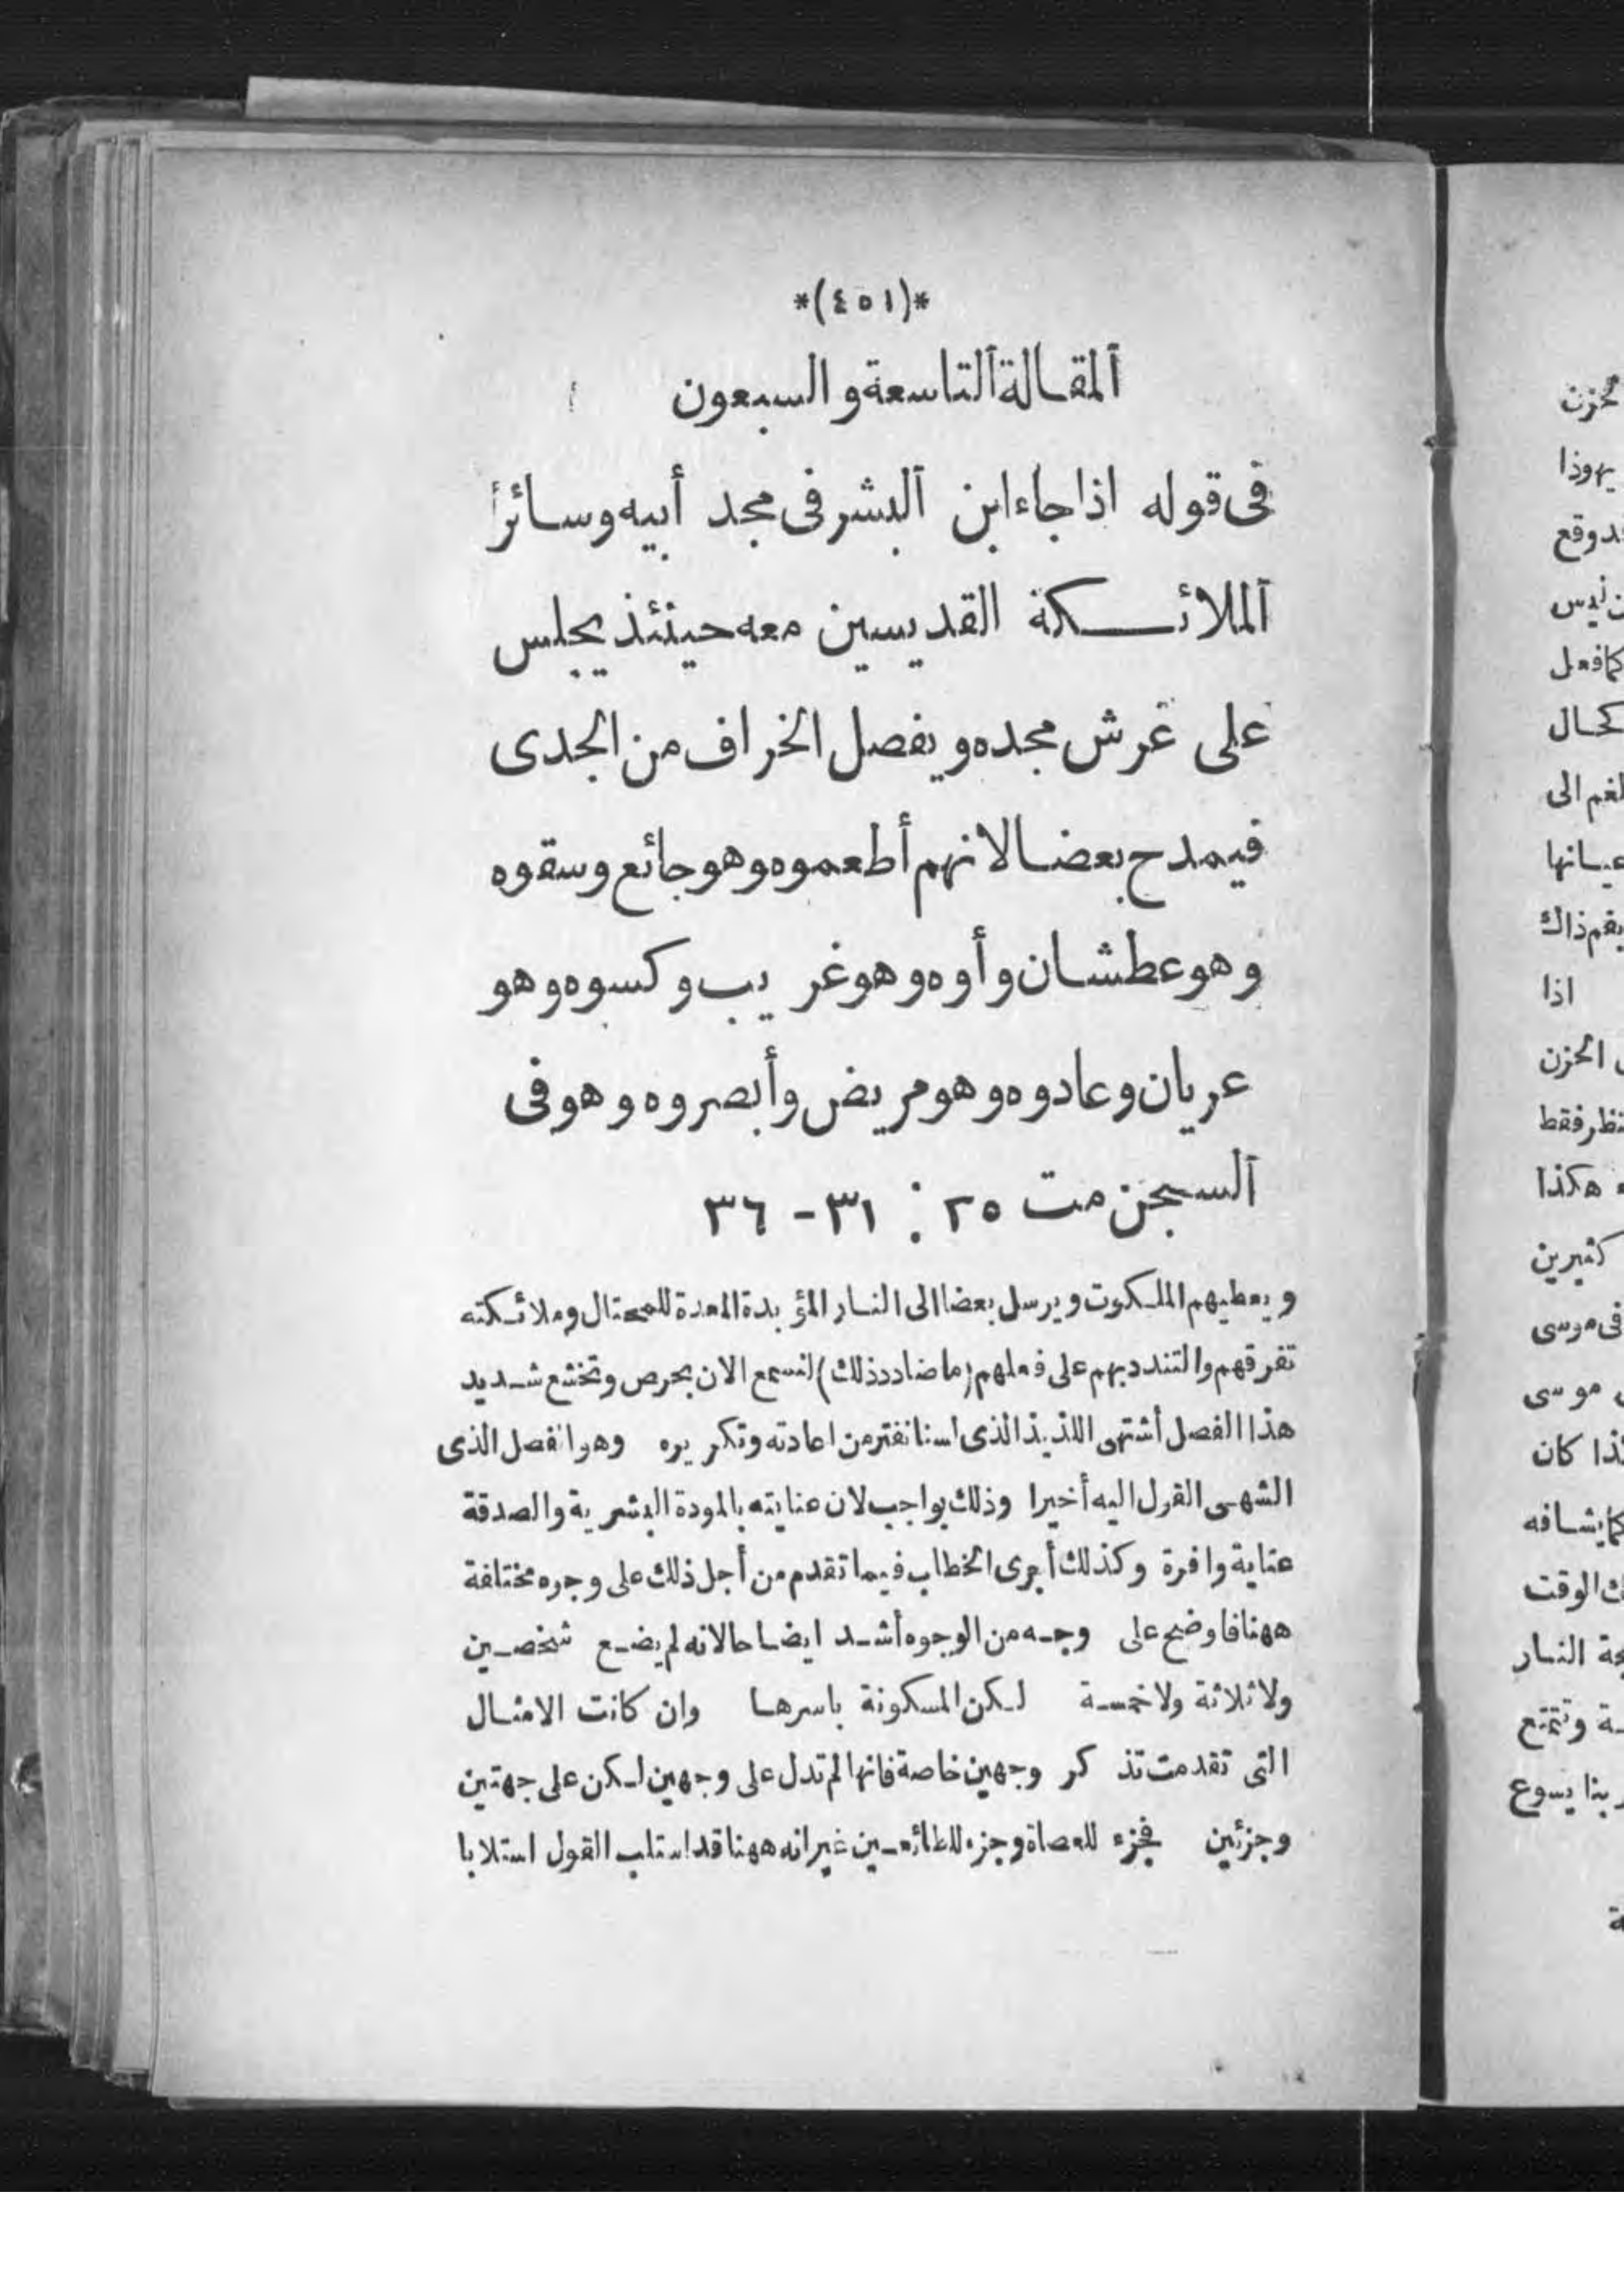 *(٤٥١)*
ٱلمقالة ٱلتاسعة و السبعون
فى قوله اذا جاء ابن ٱلبشر فى مجد أبيه وسائر
ٱلملائكة القديسين معه حينئذ يجلس
على عرش مجده و يفصل الخراف من الجدى
فيمدح بعضا لانهم أطعموه وهو جائع وسقوه
وهو عطشان و أوه وهو غريب و كسوه وهو
عريان وعادوه وهو مريض وأبصروه وهو فى
ٱلسجن مت ٢٥ : ٣١ - ٣٦
و يعطيهم الملكوت و يرسل بعضا الى النار المؤبدة المعدة للمحتال وملائكته
تفرقهم والتنديد بهم على فعلهم (ما ضادد ذلك) لنسمع الان بحرص وتخشع شديد
هذا الفصل أشتهى اللذيذ الذى لسنا نفتر من اعادته وتكريره وهو الفصل الذى
الشهى القول اليه أخيرا وذلك بواجب لان عنايته بالمودة البشرية والصدقة
عناية وافرة وكذلك أجرى الخطاب فيما تقدم من أجل ذلك على وجوه مختلفة
ههنا فاوضح على وجه من الوجوه أشد ايضاحا لانه لم يضع شخصين
ولا ثلاثة ولا خمسة لكن المسكونة باسرها وان كانت الامثال
التى تقدمت تذكر وجهين خاصة فانها لم تدل على وجهين لكن على جهتين
وجزئين فجزء للعصاة وجزء للطائعين غير انه ههنا قد استلب القول استلابا
محزن
يهوذا
وقع
كما فعل
كحال
الى
ذاك
اذا
الحزن
فقط
هكذا
كثيرين
فى موسى
موسى
كان
كما يشافه
الوقت
النار
وتتمتع
بنا يسوع